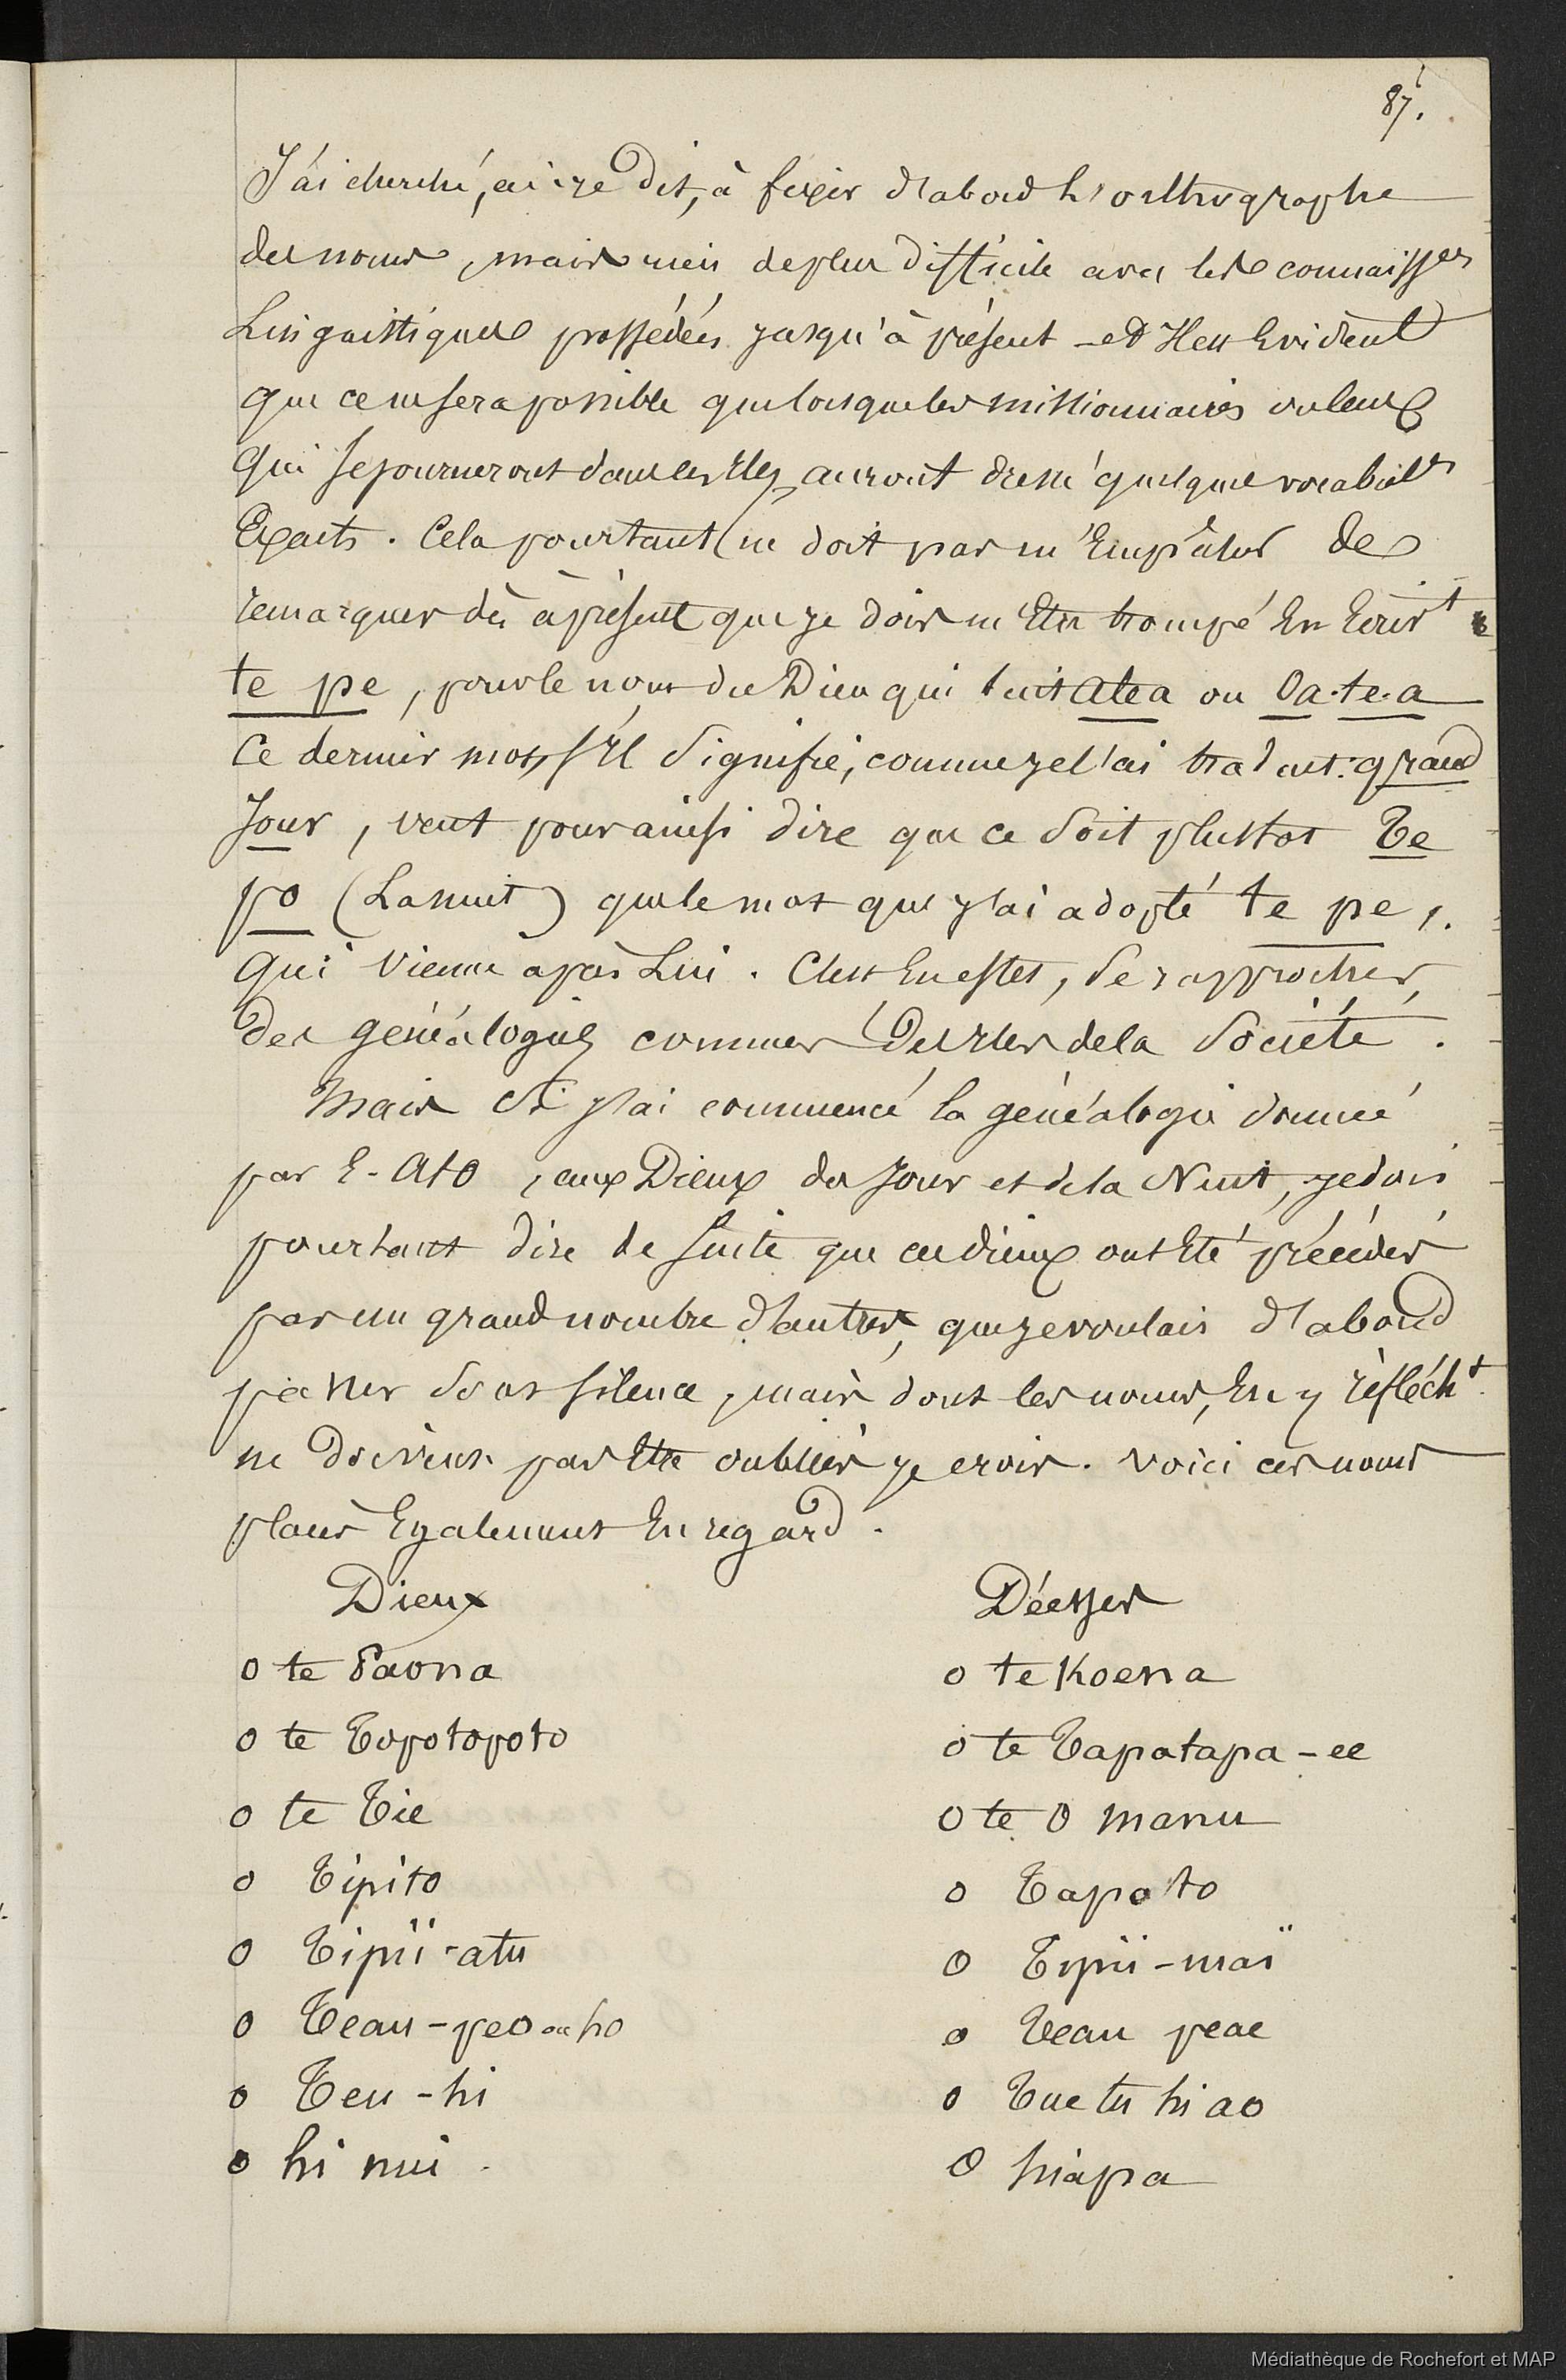 87.
J'ai cherché, ai-je dit, à fixer d'abord l'orthographe
des noms, mais rien de plus difficile avec les connaiss.es
Linguistiques possédées jusqu'à présent - et Il est Evident
que ce ne sera possible que lorsque les missionnaires
qui séjourneront dans les Iles, auront dressé quelques vocabul.s
Exacts. Cela pourtant ne doit pas m'Empêcher de
remarquer dès à présent que je dois m'Etre trompé En Ecriv.t
te pe, pour le nom du Dieu qui suit atea ou Oa-te-a
Ce dernier mot, s'Il signifie, comme je l'ai traduit: grand
Jour, veut pour ainsi dire que ce soit plustot Te
po (La nuit) que le mot que j'ai adopté te pe,
qui vienne après Lui. C'est En effet, se rapprocher,
des généalogies connues des Iles de la Société.
Mais si j'ai commencé la généalogie donnée
par E-Ato, aux Dieux du Jour et de la Nuit, je dois
pourtant dire de suite que ces dieux ont Eté précédés
par un grand nombre d'autres, que je voulais d'abord
passer sous silence, mais dont les noms, En y réfléch.t
ne doivent pas Etre oubliés je crois. Voici ces noms
placés Egalement En regard.
Dieux Déesses
o te Paona o te Koena
o te Topotopoto o te Tapatapa-ee
o te Tie o te O manu
o Tipito o Tapoto
o Tipii-atu o Tipii-maï
o Teau-peo ou ho o Teau peae
o Teu-hi o Tue tu hi ao
o hi nui. o hiapa
Médiathèque de Rochefort et MAP